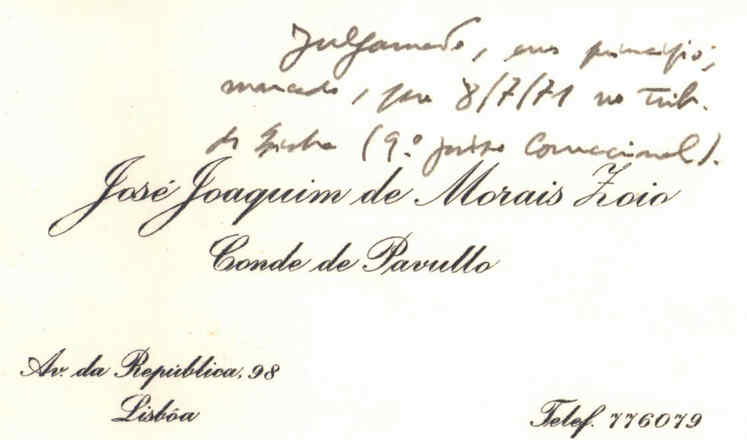 Julgamento, em princípio,
marcado, para 8/7/71 no Trib.
de Lisboa (9.º juízo Correcional).
José Joaquim de Morais Zoio
Conde de Pavullo
Av. da República, 98
Lisbôa
Telef. 776079